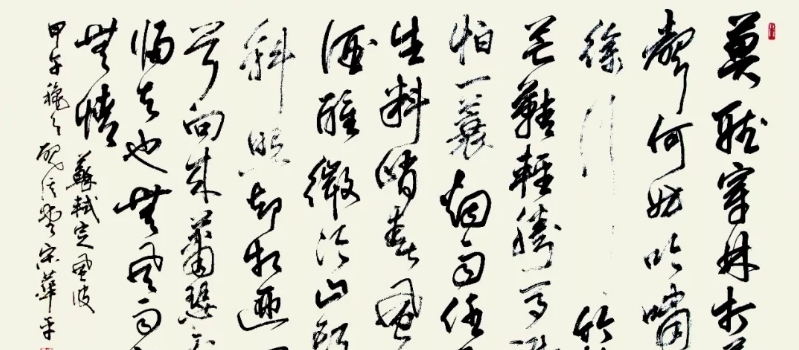 莫聽穿林打
聲何妨吟嘯
徐行竹
芒鞋輕勝馬
怕一蓑烟雨任
生料峭春風
酒醒微冷山頭
斜照却相迎
首向來蕭瑟
歸去也無風雨
無晴
蘇軾定風波
甲午穐 宋華平